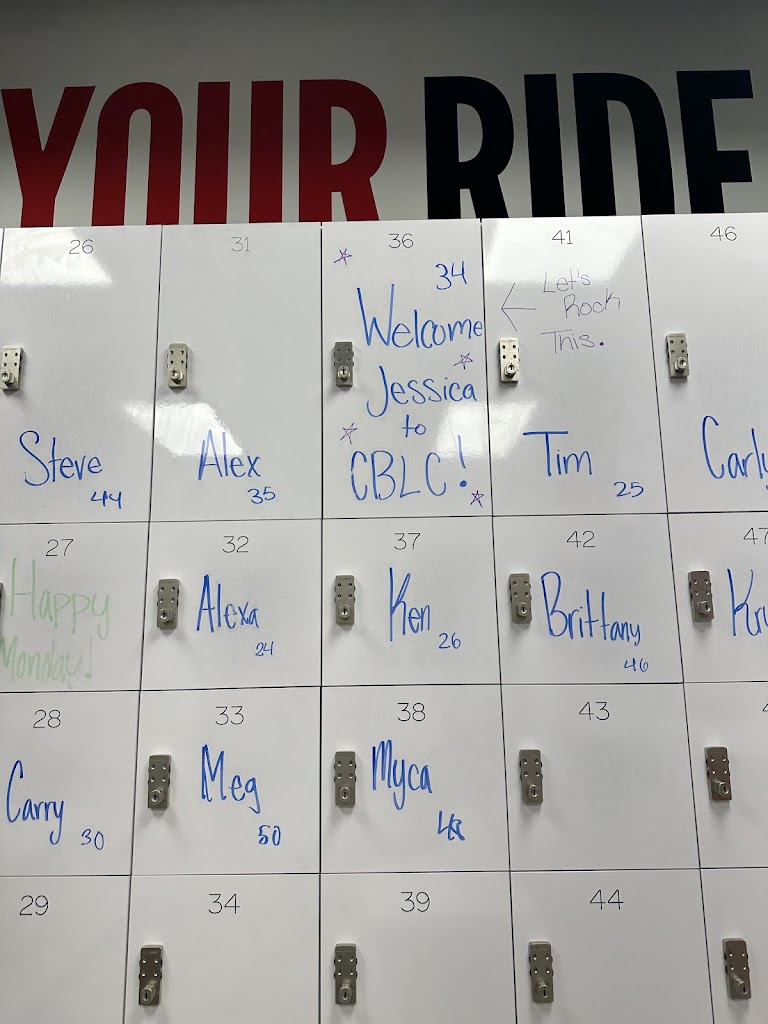 YOUR RIDE
26
Steve
44
31
Alex
35
36
34
Welcome
Jessica
to
CBLC!
41
Let's
Rock
This.
Tim
25
46
Carly
27
Happy
Monday!
32
Alexa
24
37
Ken
26
42
Brittany
46
47
28
Carry
30
33
Meg
50
38
Myca
48
43
29
34
39
44